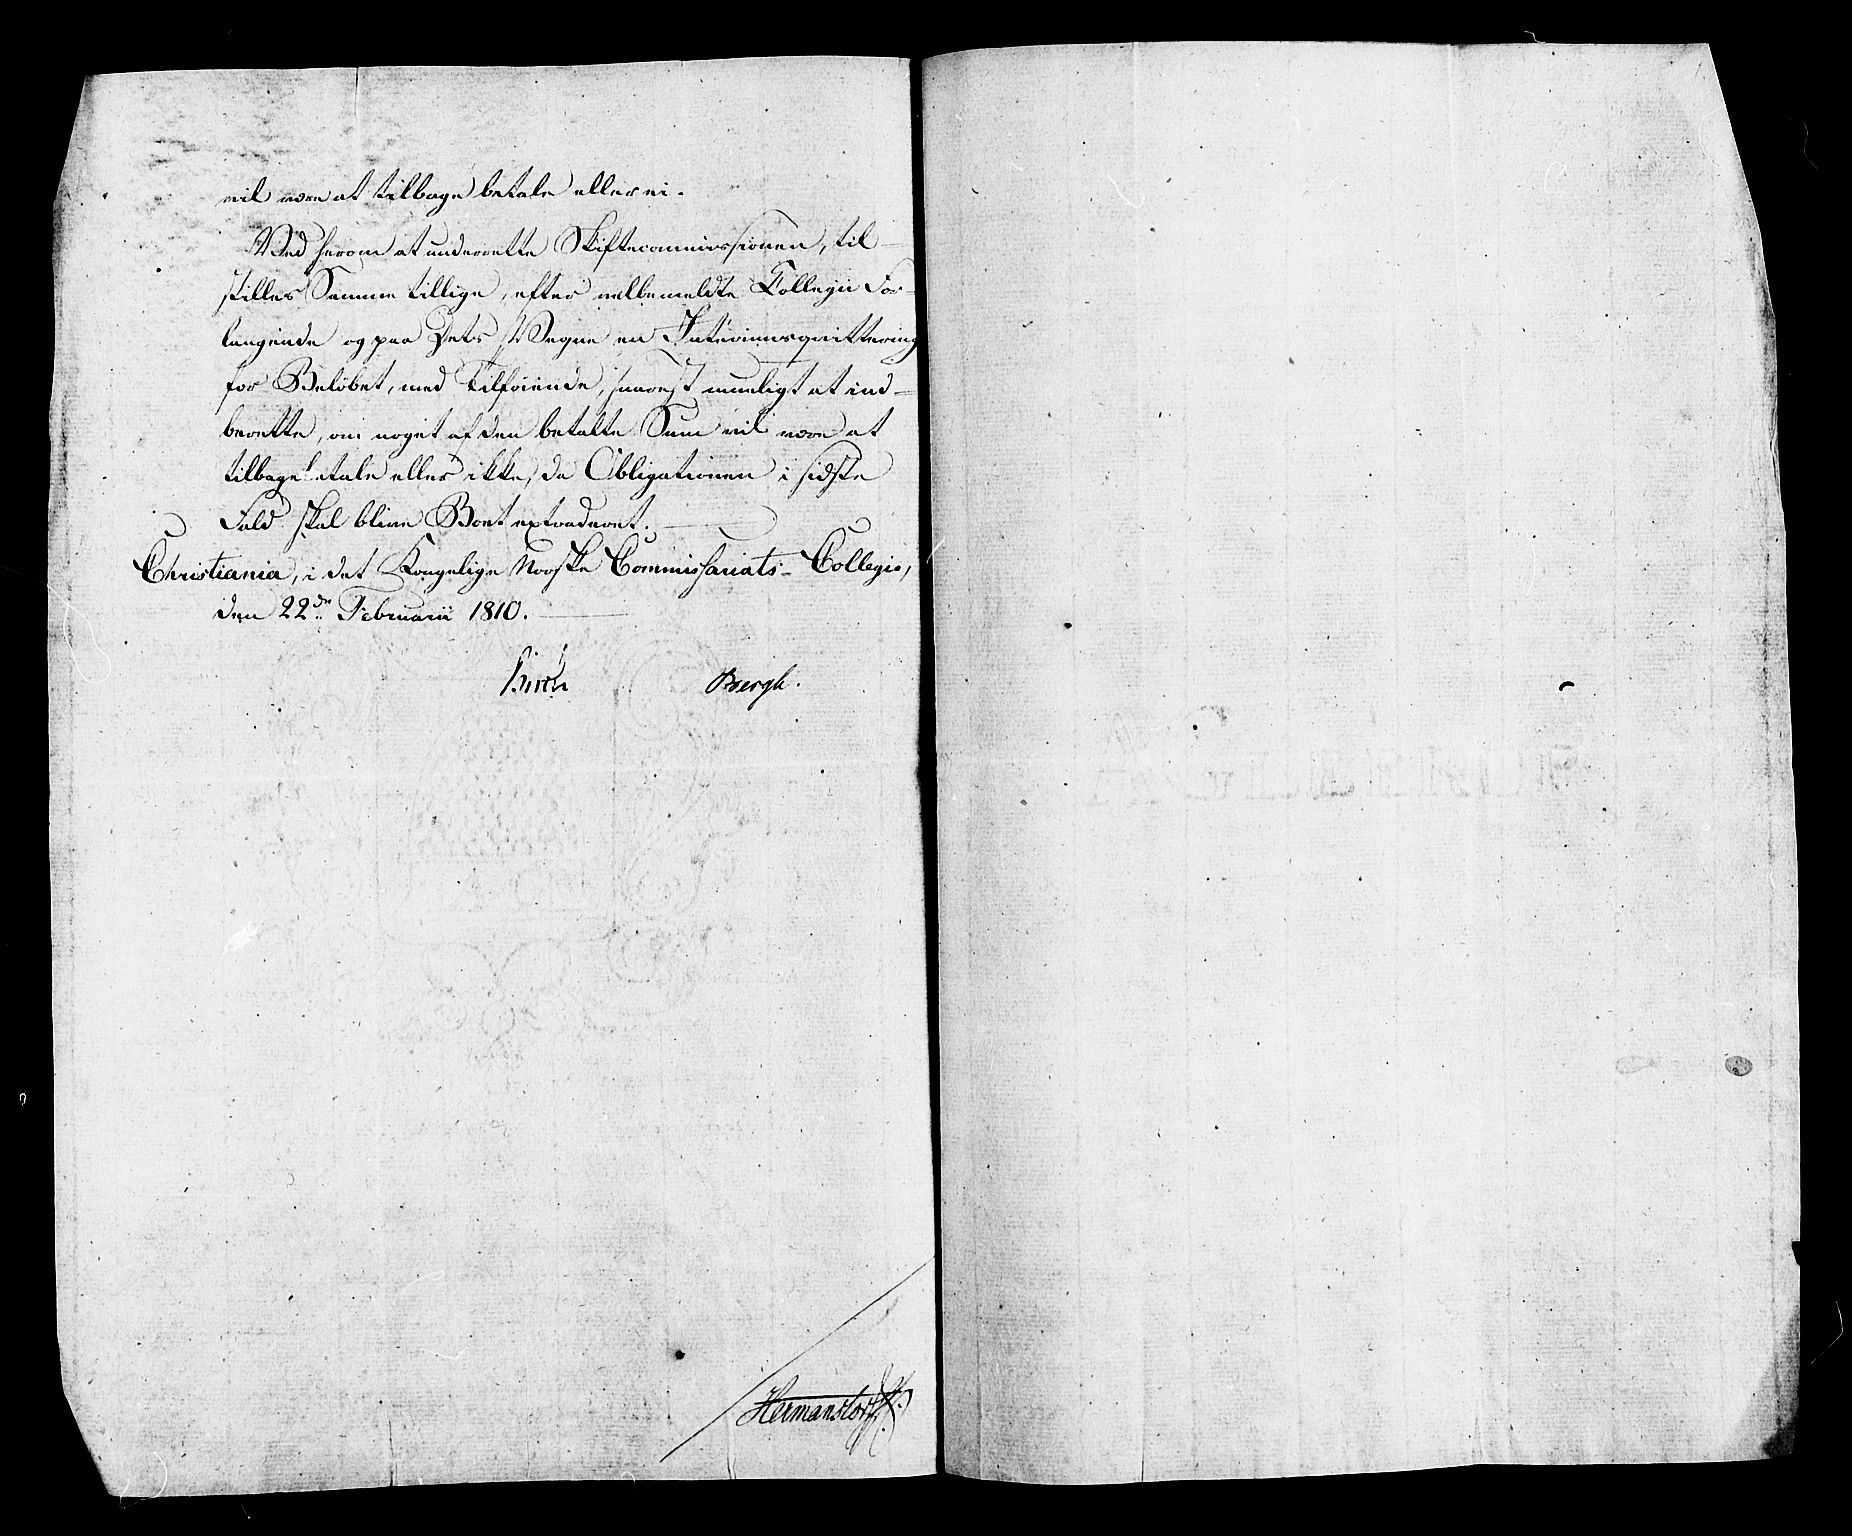 vil være at tilbage betale eller ei.
Ved herom at underrette Skiftecommissionen, til-
stilles Samme tillige, efter velbemeldte Collegii For-
langende og paa Dets Vegne en Interimsqvittering
for Beløbet, med Tilføiende, snarest mueligt at ind-
berette, om noget af den betalte Sum vil være at
tilbagebetale eller ikke, da Obligationen i sidste
Fald skal blive Boet extraderet.
Christiania, i det Kongelige Norske Commissariats-Collegio,
den 22de Februarii 1810.
Birch Bergh.
Hermanstorff